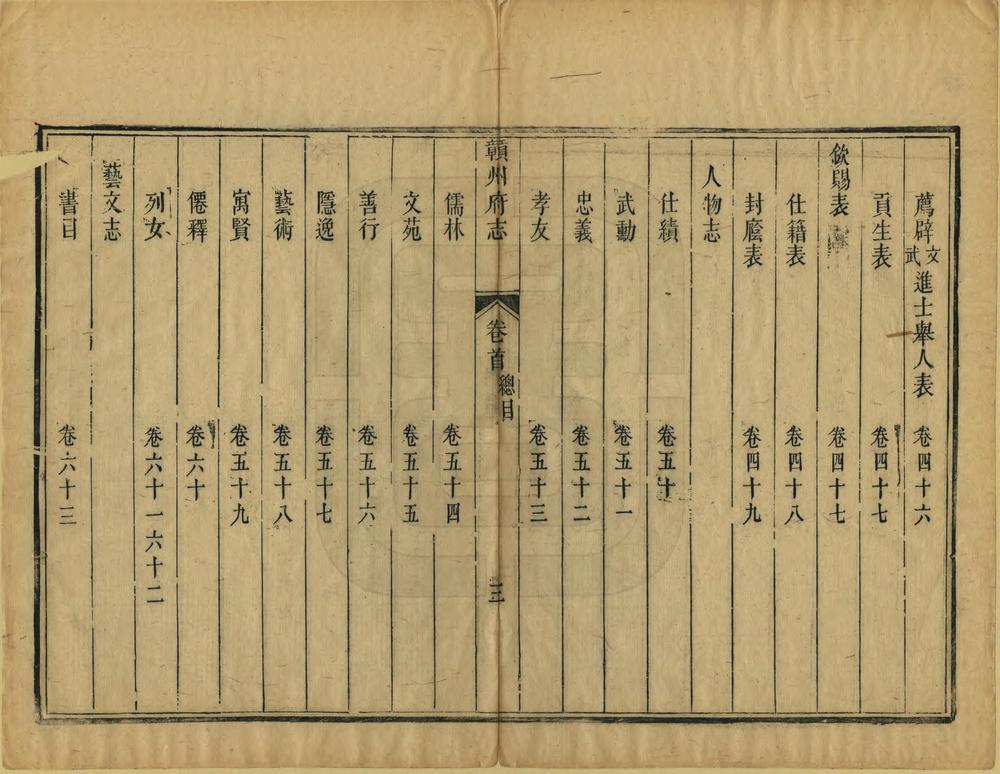 薦辟文武進士舉人表 卷四十六
貢生表 卷四十七
欽賜表 卷四十七
仕籍表 卷四十八
封廕表 卷四十九
人物志
仕績 卷五十
武勳 卷五十一
忠義 卷五十二
孝友 卷五十三
贛州府志 卷首 總目 三
儒林 卷五十四
文苑 卷五十五
善行 卷五十六
隱逸 卷五十七
藝術 卷五十八
寓賢 卷五十九
僊釋 卷六十
列女 卷六十一 六十二
藝文志
書目 卷六十三